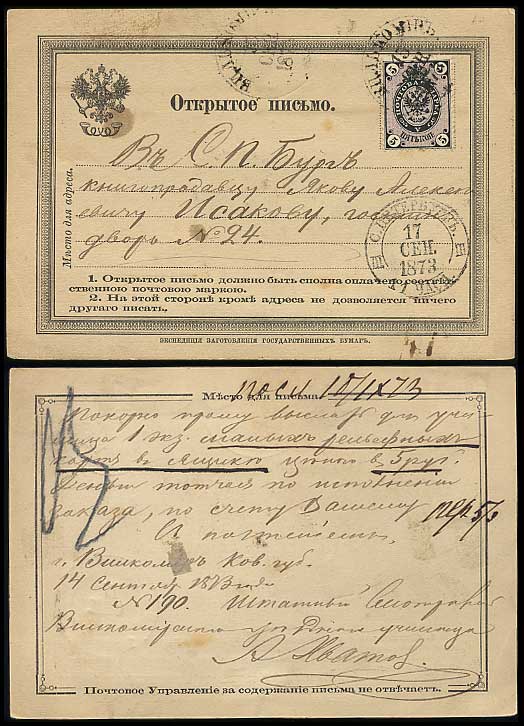 ВИЛЬКОМИР
ВИЛЬКОМИР
Открытое письмо.
5 5
ПЯТЬ КОП.
5 5
Въ С. П. Бургъ
книгопродавцу Якову Алексе
евичу Исакову, гостин
дворъ № 24.
Мѣсто для адреса.
С.ПЕТЕРБУРГЪ.
17
СЕН.
1873
1. Открытое письмо должно быть сполна оплачено соотвѣт-
ственною почтовою маркою.
2. На этой сторонѣ кромѣ адреса не дозволяется ничего
другаго писать.
ЭКСПЕДИЦІЯ ЗАГОТОВЛЕНІЯ ГОСУДАРСТВЕННЫХЪ БУМАГЪ.
Мѣсто для письма
Покорно прошу выслать для учи
лища 1 экз. малыхъ рельефныхъ
картъ въ ящикѣ цѣною въ 5 руб.
Деньги тотчасъ по исполненіи
заказа, по счету Вашему
И почтенъ
г. Вилкомиръ Ков. губ.
14 Сентября 1873 года
№ 190. Штатный Смотритель
Вилкомирскаго уѣзднаго училища
Почтовое Управленіе за содержаніе письма не отвѣчаетъ.